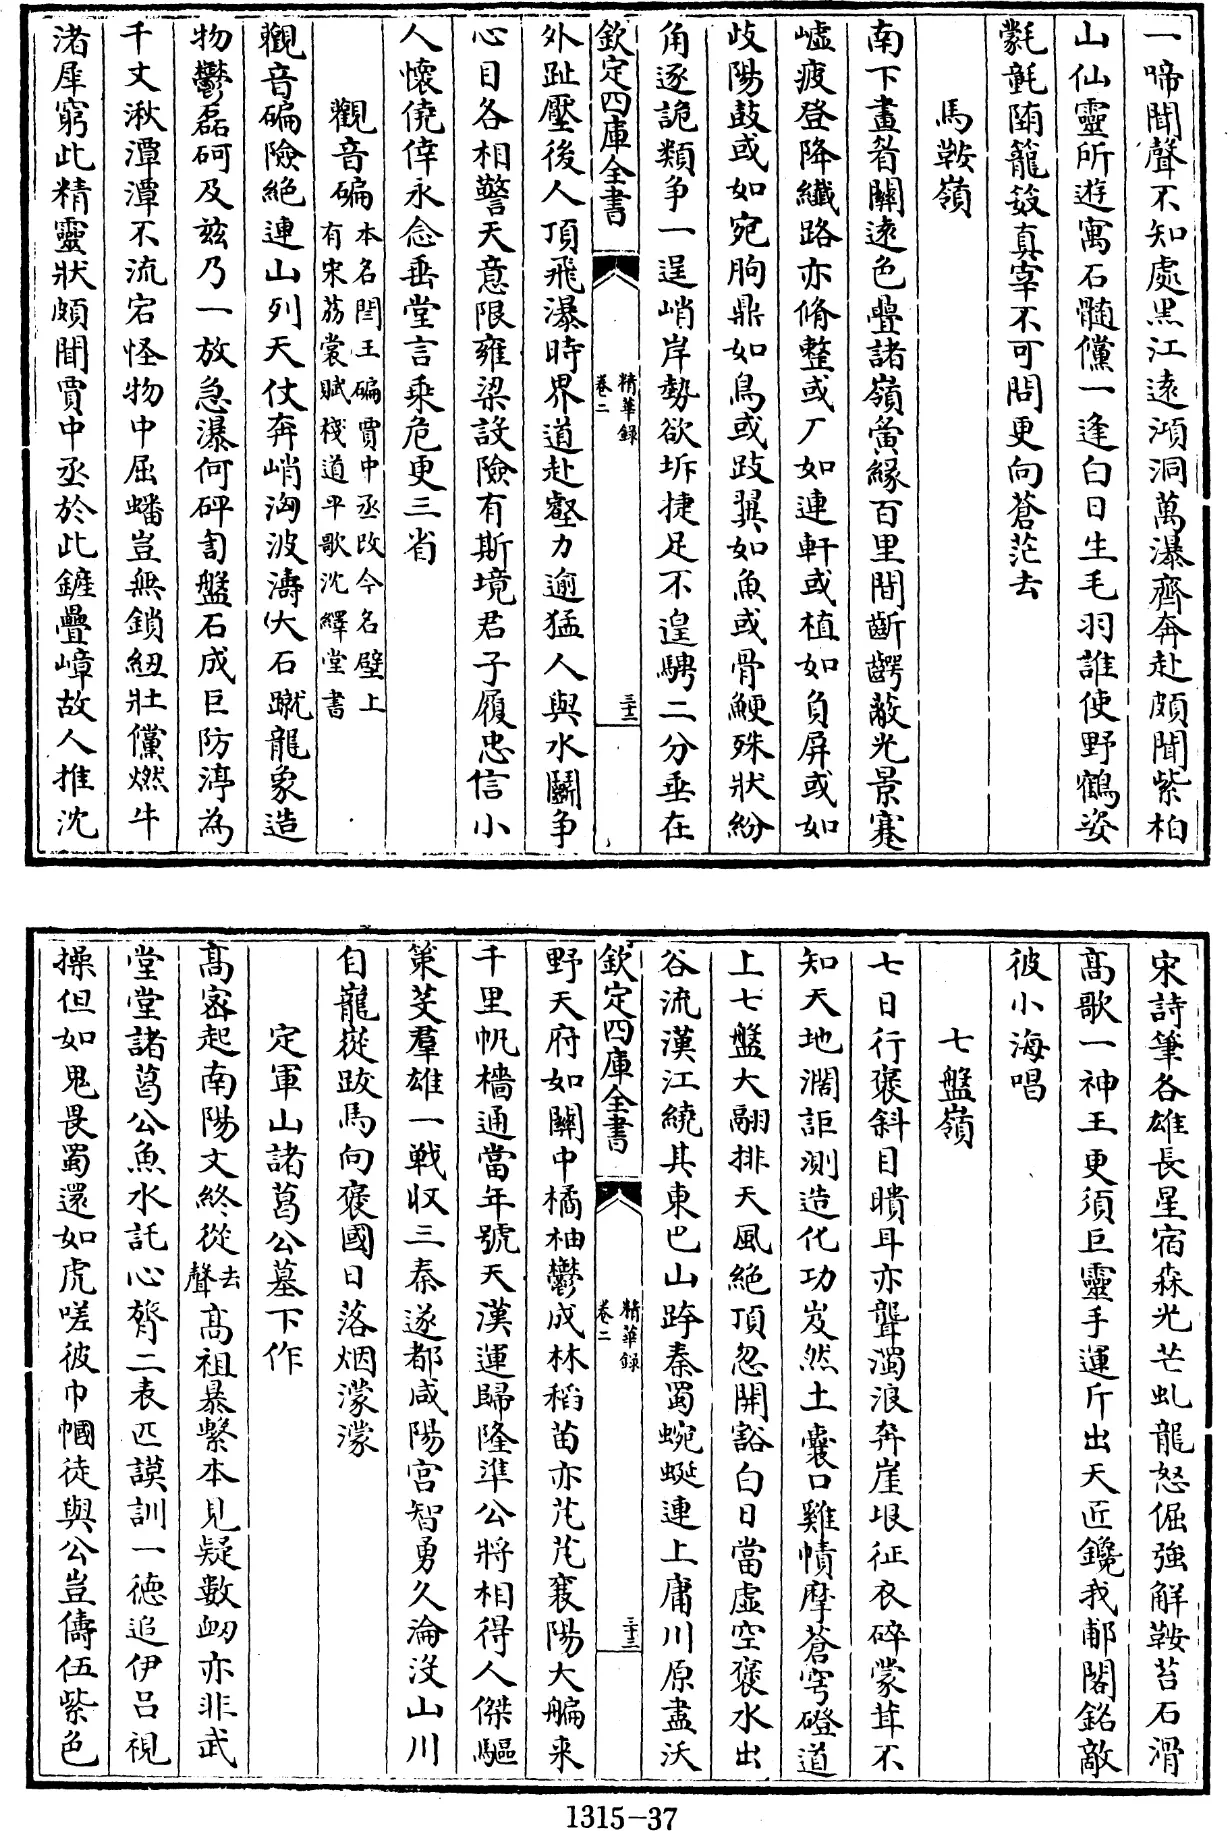 一啼聞聲不知處黑江遠澒洞萬瀑齊奔赴頗聞紫柏
山仙靈所遊寓石髓儻一逢白日生毛羽誰使野鶴姿
氋氃陏籠笯真宰不可問更向蒼茫去
馬鞍嶺
南下畫眷關遠色疊諸嶺夤緣百里間齗齶蔽光景蹇
嶟疲登降纖路亦脩整或厂如連軒或植如負屏或如
歧陽鼓或如宛朐鼎如鳥或跂翼如魚或骨鯁殊狀紛
角逐詭類争一逞峭岸勢欲坼捷足不遑騁二分垂在
欽定四庫全書
精華錄
卷二
三十二
外趾壓後人頂飛瀑時界道赴壑力逾猛人與水鬭争
心目各相警天意限雍梁設險有斯境君子履忠信小
人懷僥倖永念垂堂言乘危更三省
觀音碥本名閻王碥賈中丞改今名壁上
有宋荔裳賦棧道平歌沈繹堂書
觀音碥險絶連山列天仗奔峭洶波濤伏石蹴龍象造
物鬱磊砢及兹乃一放急瀑何砰訇盤石成巨防渟為
千丈湫潭潭不流宕怪物中屈蟠豈無鎖紐壯儻燃牛
渚犀窮此精靈狀頗聞賈中丞於此鏟疊嶂故人推沈
宋詩筆各雄長星宿森光芒虬龍怒倔強解鞍苔石滑
高歌一神王更須巨靈手運斤出天匠鑱我郙閣銘敵
彼小海唱
七盤嶺
七日行褒斜目瞶耳亦聾濁浪奔崖垠征衣碎蒙茸不
知天地濶詎測造化功岌然土囊口雞幘摩蒼穹磴道
上七盤大翮排天風絶頂忽開豁白日當虛空褒水出
谷流漢江繞其東巴山跨秦蜀蜿蜒連上庸川原盡沃
欽定四庫全書
精華錄
卷二
三十三
野天府如關中橘柚鬱成林稻苗亦芃芃襄陽大艑来
千里帆檣通當年號天漢運歸隆準公將相得人傑驅
策芟羣雄一戰収三秦遂都咸陽宫智勇久淪没山川
自巃嵸跋馬向褒國日落烟濛濛
定軍山諸葛公墓下作
髙密起南陽文終從去聲高祖暴繫本見疑數衂亦非武
堂堂諸葛公魚水託心膂二表匹謨訓一德追伊吕視
操但如鬼畏蜀還如虎嗟彼巾幗徒與公豈儔伍紫色
1315-37